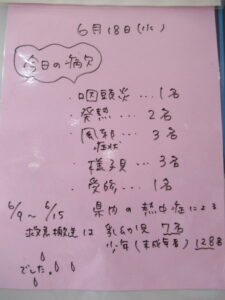 6月18日(水)
今日の病欠
・咽頭炎…1名
・発熱…2名
・風邪症状…3名
・様子見…3名
・受診…1名
6/9~6/15 県内の熱中症による
救急搬送は 乳幼児 7名
少年(未成年者)128名
でした。